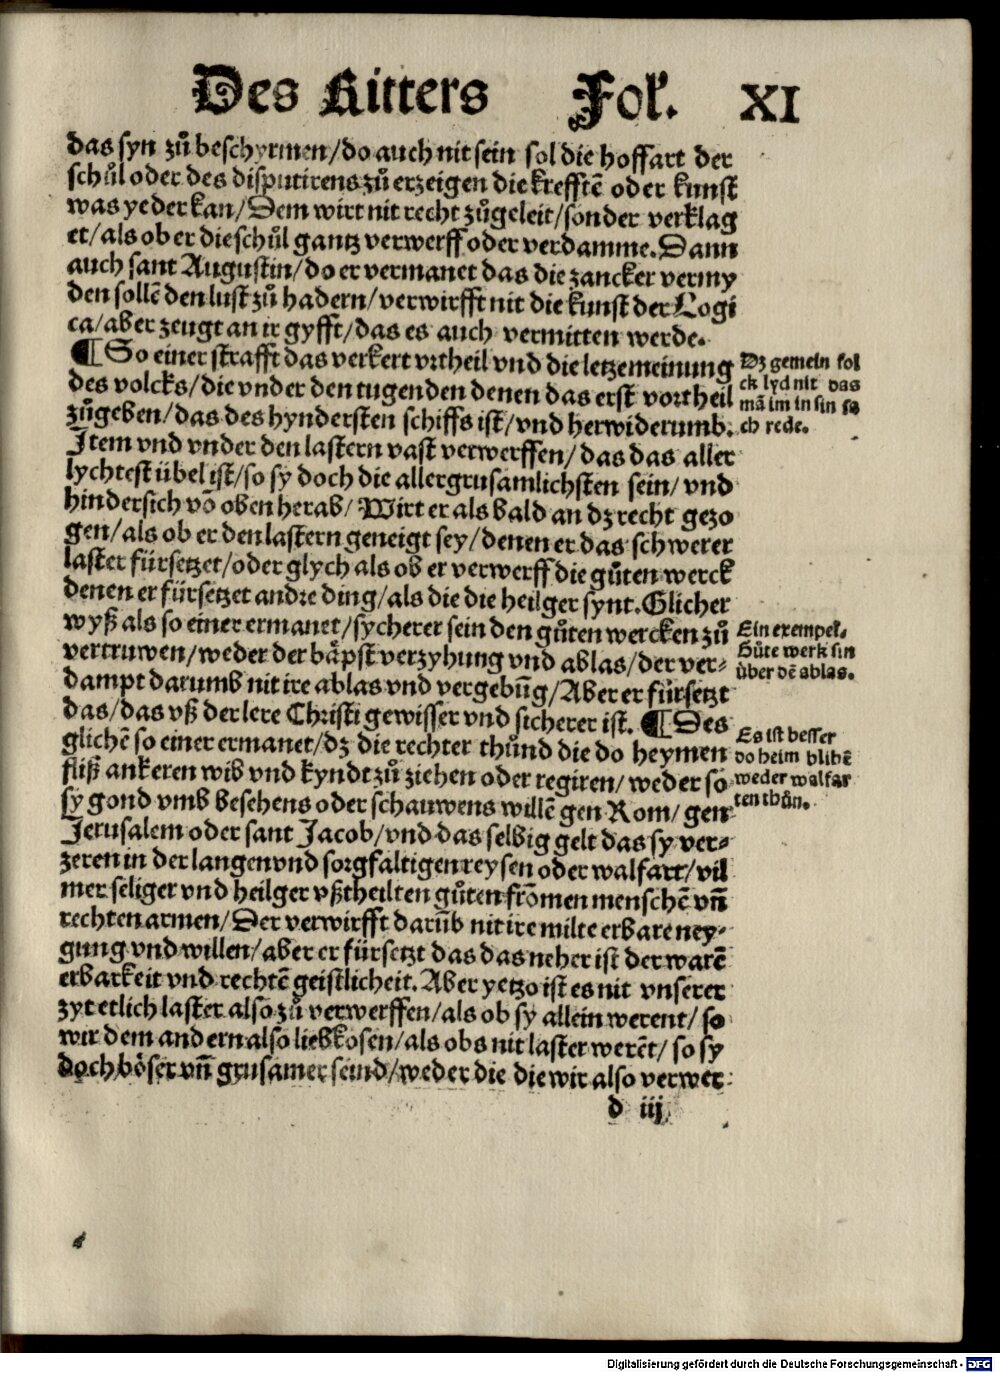 Des Ritters Fol. XI
das syn zů beschyrmen/do auch nit sein sol die hoffart der
schůl oder des disputirens zů erzeigen die krefftē oder kunst
was yeder kan/Dem wirt nit recht zůgeleit/sonder verklag
et/als ob er die schůl gantz verwerff oder verdamme. Dann
auch sant Augustin/do er vermanet das die zancker vermy
den sollē den lust zů hadern/verwirfft nit die kunst der Logi
ca/aber zeugt an ir gyfft/das es auch vermitten werde.
¶ So einer strafft das verkert vrtheil vnd die letze meinung
des volcks/die vnder den tugenden denen das erst vortheil
zůgeben/das des hyndersten schiffs ist/vnd herwiderumb.
Item vnd vnder den lastern vast verwerffen/das das aller
lychtest übel ist/so sy doch die allergrusamlichsten sein/vnd
hindersich vō oben herab/Wirt er als bald an dz recht gezo
gen/als ob er den lastern geneigt sey/denen er das schwerer
laster fürsetzet/oder glych als ob er verwerff die gůten werck
denen er fürsetzet andre ding/als die die heilger synt. Glicher
wyß als so einer ermanet/sycherer sein den gůten wercken zů
vertruwen/weder der bäpst verzyhung vnd ablas/der ver⸗
dampt darumb nit ire ablas vnd vergebūg/Aber er fürsetzt
das/das vß der lere Christi gewisser vnd sicherer ist. ¶ Des
glichē so einer ermanet/dz die rechter thůnd die do heymen
fliß ankeren wib vnd kyndt zů ziehen oder regiren/weder so
sy gond vmb besehens oder schauwens willē gen Rom/gen
Jerusalem oder sant Jacob/vnd das selbig gelt das sy ver⸗
zeren in der langen vnd sorgfaltigen reysen oder walfart/vil
mer seliger vnd heilger vßtheilten gůten frōmen menschē vn̄
rechten armen/Der verwirfft darūb nit ire milte erbare ney⸗
gung vnd willen/aber er fürsetzt das das neher ist der warē
erbarkeit vnd rechtē geistlicheit. Aber yetzo ist es nit vnserer
zyt etlich laster also zů verwerffen/als ob sy allein werent/so
wir dem andern also liebkosen/als obs nit laster werēt/so sy
doch böser vn̄ grusamer seind/weder die die wir also verwer⸗
d iij
Dz gemein fol
ck lyd nit das
mā im in sin sa
ch rede.
Ein exempel.
Gůte werk sin
über dē ablas.
Es ist besser
do heim blibē
weder walfar
ten thůn.
Digitalisierung gefördert durch die Deutsche Forschungsgemeinschaft - DFG